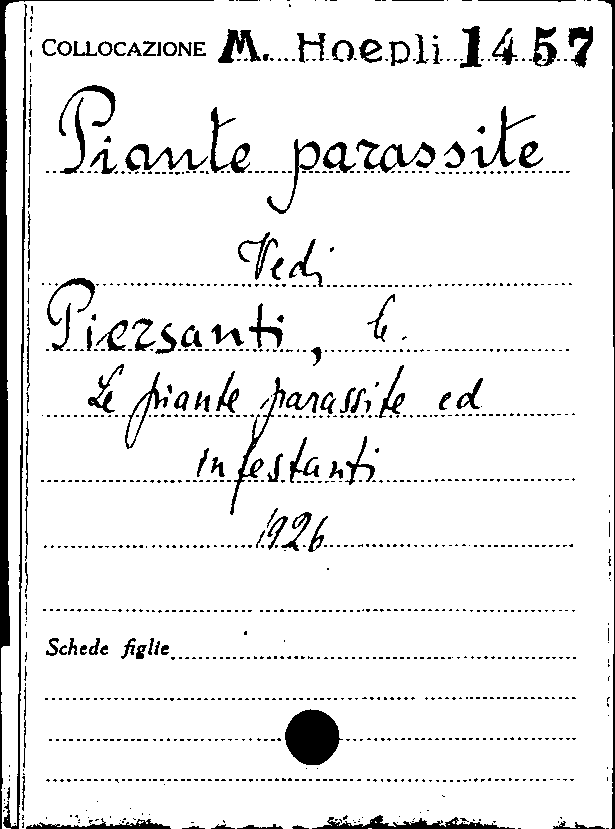 COLLOCAZIONE M. Hoepli 1457
Piante parassite
Vedi
Piersanti, C.
Le piante parassite ed
infestanti
1926
Schede figlie